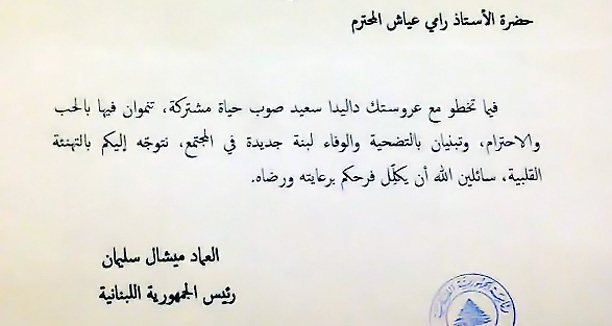 حضرة الأستاذ رامي عياش المحترم
فيما تخطو مع عروستك داليدا سعيد صوب حياة مشتركة، تنموان فيها بالحب
والاحترام، وتبنيان بالتضحية والوفاء لبنة جديدة في المجتمع، نتوجّه إليكم بالتهنئة
القلبية، سائلين الله أن يكلّل فرحكم برعايته ورضاه.
العماد ميشال سليمان
رئيس الجمهورية اللبنانية